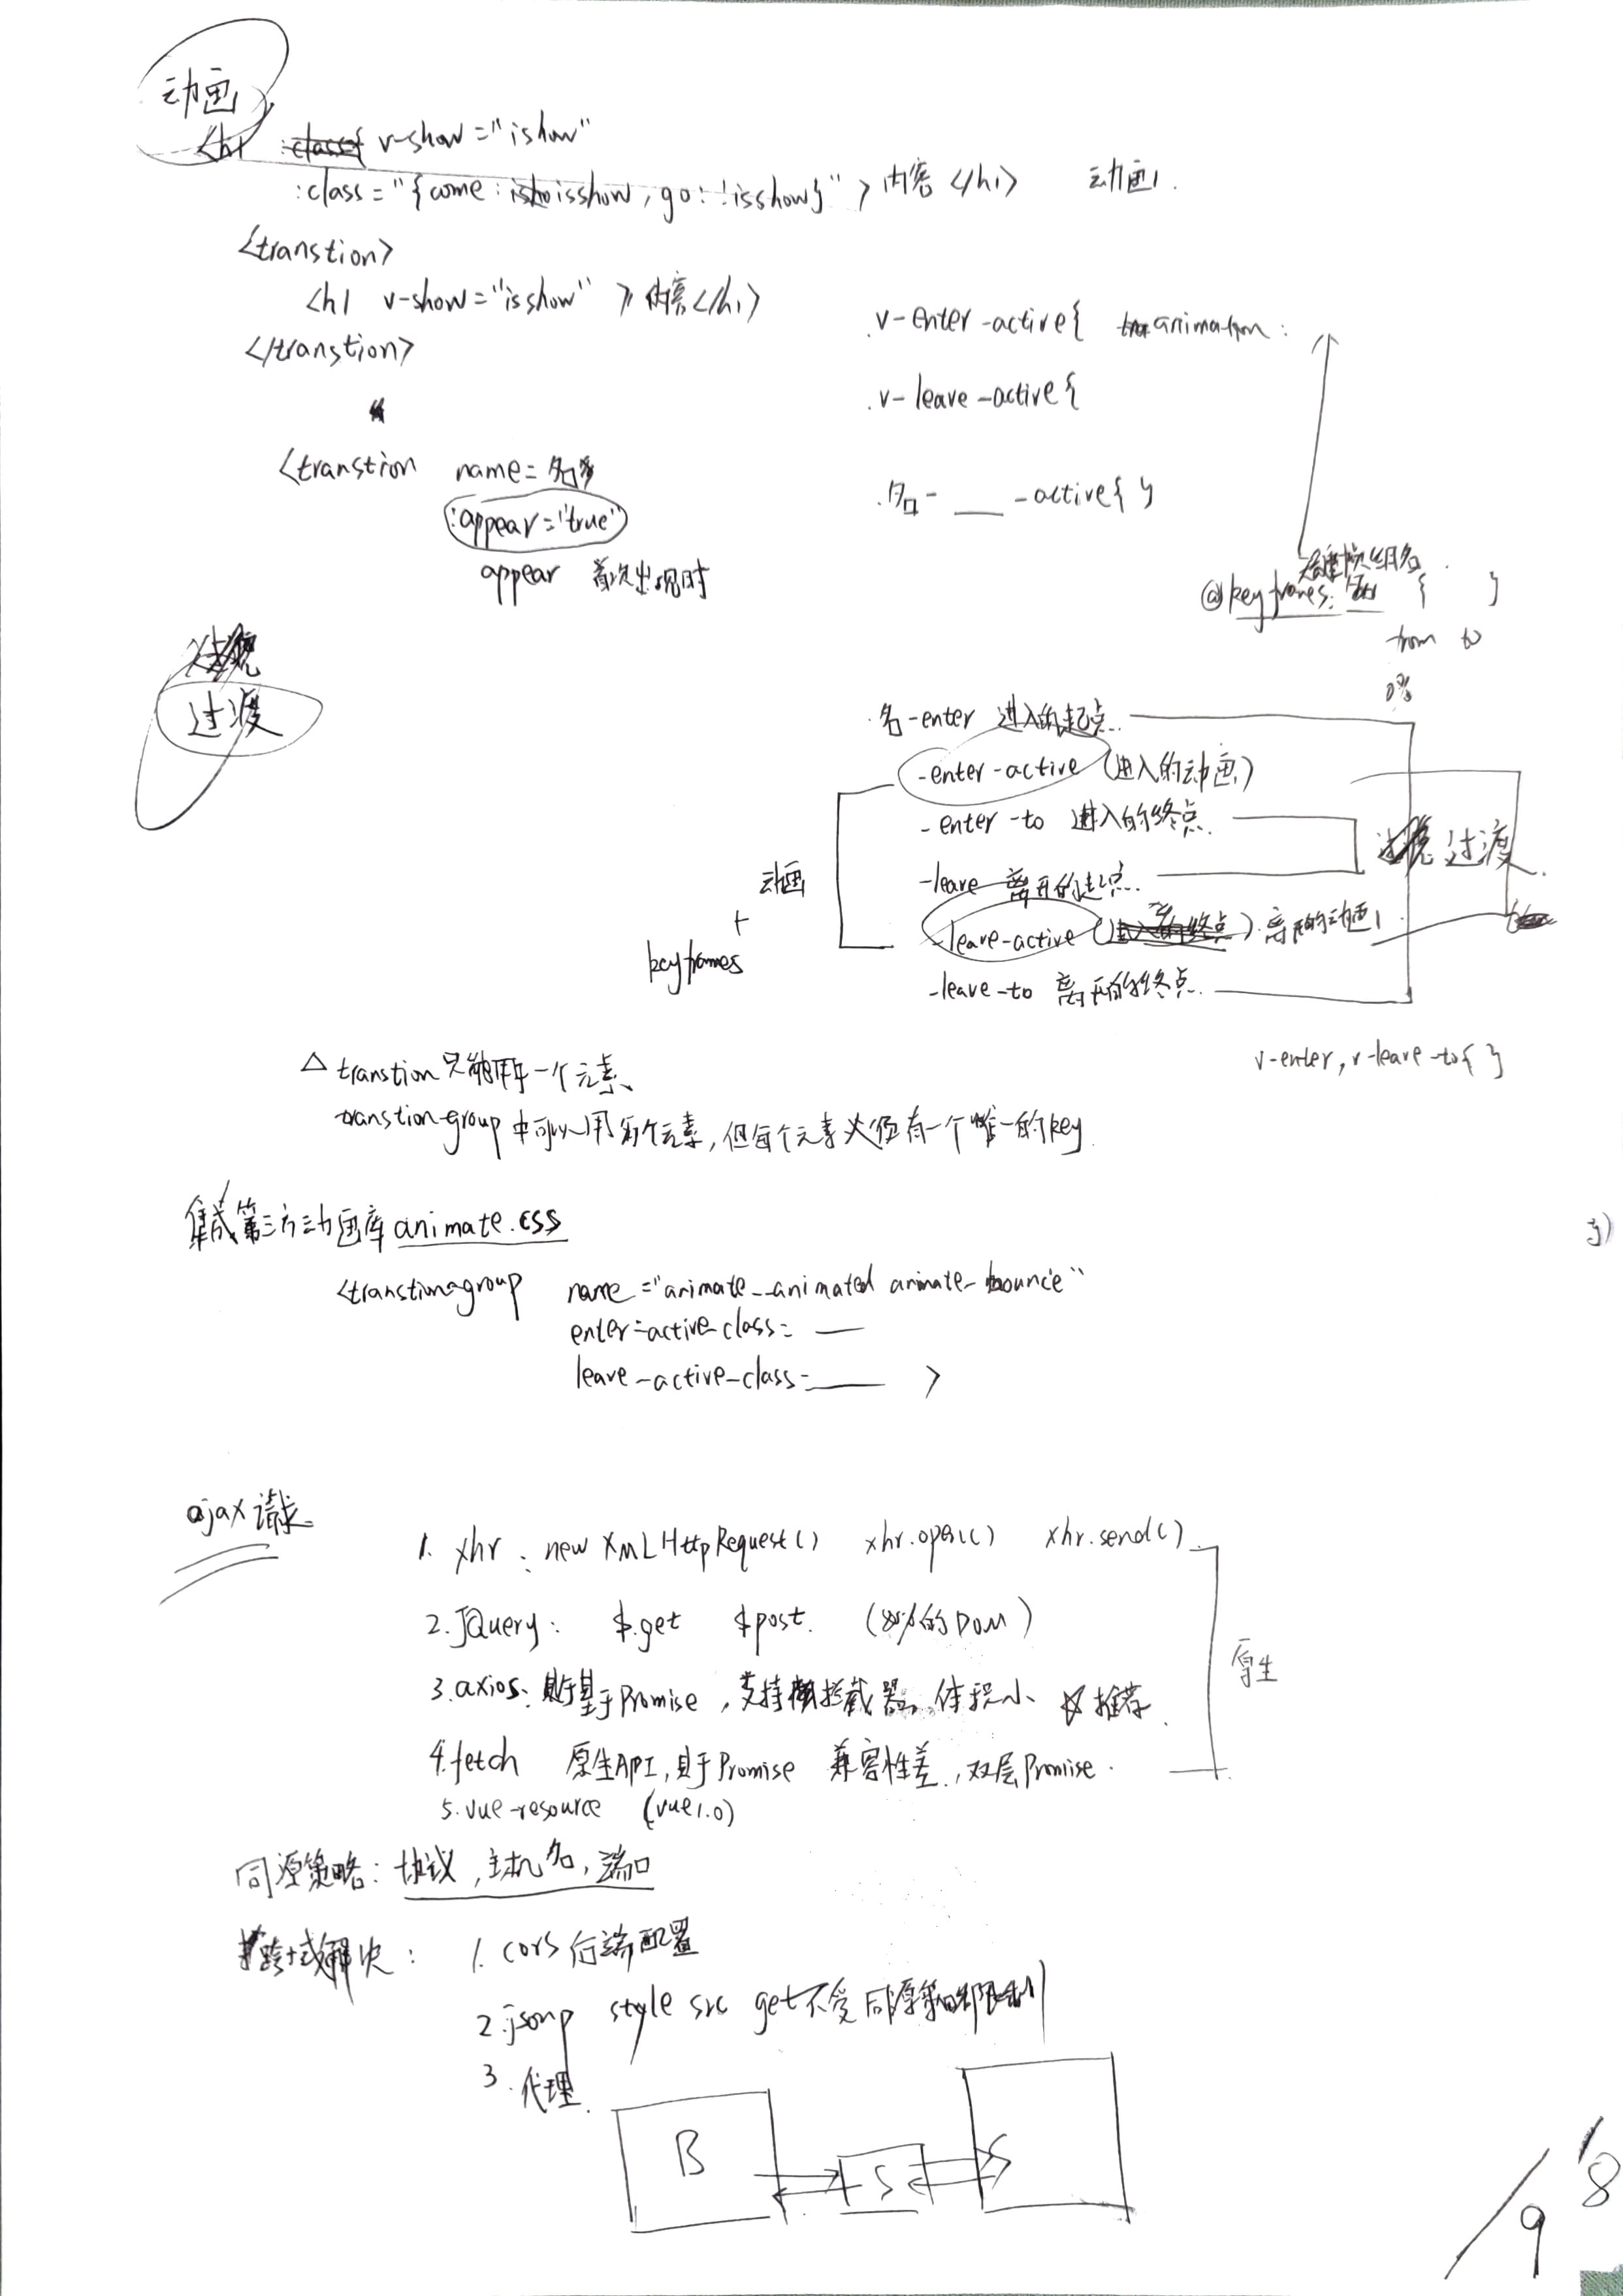 动画
<h1 v-show="ishow"
:class="{come: isshow, go: !isshow}" > 内容 </h1> 动画1.
<transtion>
<h1 v-show="isshow" > 内容 </h1>
</transtion>
.v-enter-active{ animation:
.v-leave-active{
<transtion name=名字
:appear="true"
appear 首次出现时
.名-___-active{ }
关键帧组名
@keyframes: { }
from to
0%
过渡
名-enter 进入的起点.
-enter-active (进入的动画)
-enter-to 进入的终点.
-leave 离开的起点.
-leave-active 离开的动画
-leave-to 离开的终点.
过渡.
动画
+
keyframes
v-enter, v-leave-to{ }
△ transtion只能用于一个元素、
transtion-group 中可以用多个元素, 但每个元素必须有一个唯一的key.
集成第三方动画库animate.css
<transtion-group name="animate__animated animate-bounce"
enter-active-class= __
leave-active-class=___ >
ajax请求
1. xhr: new XMLHttpRequest() xhr.open() xhr.send()
2. JQuery: $.get $post. (80%的DOM)
3. axios: 基于Promise, 支持拦截器, 体积小 ☆推荐.
4. fetch 原生API, 基于Promise 兼容性差, 双层Promise.
5. vue-resource (vue1.0)
原生
同源策略: 协议, 主机名, 端口
跨域解决: 1. cors 后端配置
2. jsonp style src get不受同源策略限制
3. 代理.
B S S
9 18